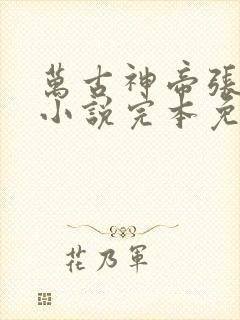 萬古神帝張
小說完本免
花乃軍